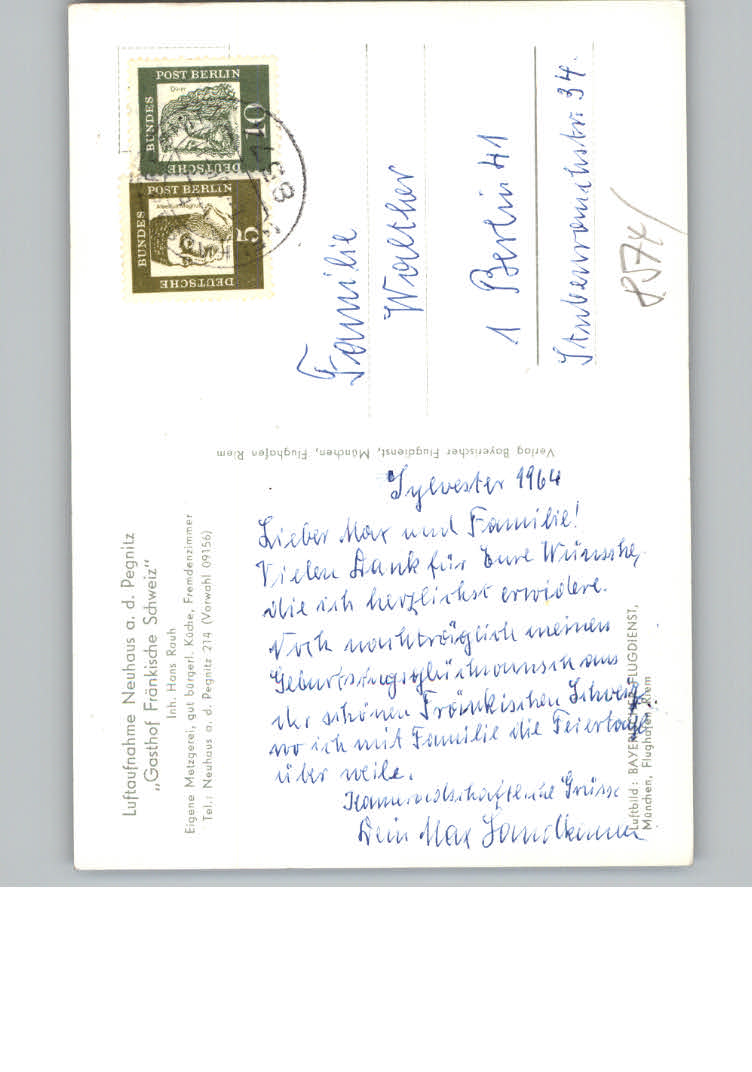 Luftaufnahme Neuhaus a. d. Pegnitz
„Gasthof Fränkische Schweiz"
Inh. Hans Rauh
Eigene Metzgerei, gut bürgerl. Küche, Fremdenzimmer
Tel.: Neuhaus a. d. Pegnitz 214 (Vorwahl 09156)
Sylvester 1964
Lieber Max und Familie!
Vielen Dank für Eure Wünsche,
die ich herzlichst erwidere.
Noch nachträglich meinen
Geburtstagsglückwunsch aus
der schönen Fränkischen Schweiz,
wo ich mit Familie die Feiertage
über weile.
Kameradschaftliche Grüsse
Dein Max
Luftbild: BAYERISCHER FLUGDIENST,
München, Flughafen Riem
Verlag Bayerischer Flugdienst, München, Flughafen Riem
DEUTSCHE BUNDES POST BERLIN
Dürer
10
DEUTSCHE BUNDES POST BERLIN
Albertus Magnus
5
Familie
Walther
1 Berlin 41
Stubenrauchstr. 34.
8574/